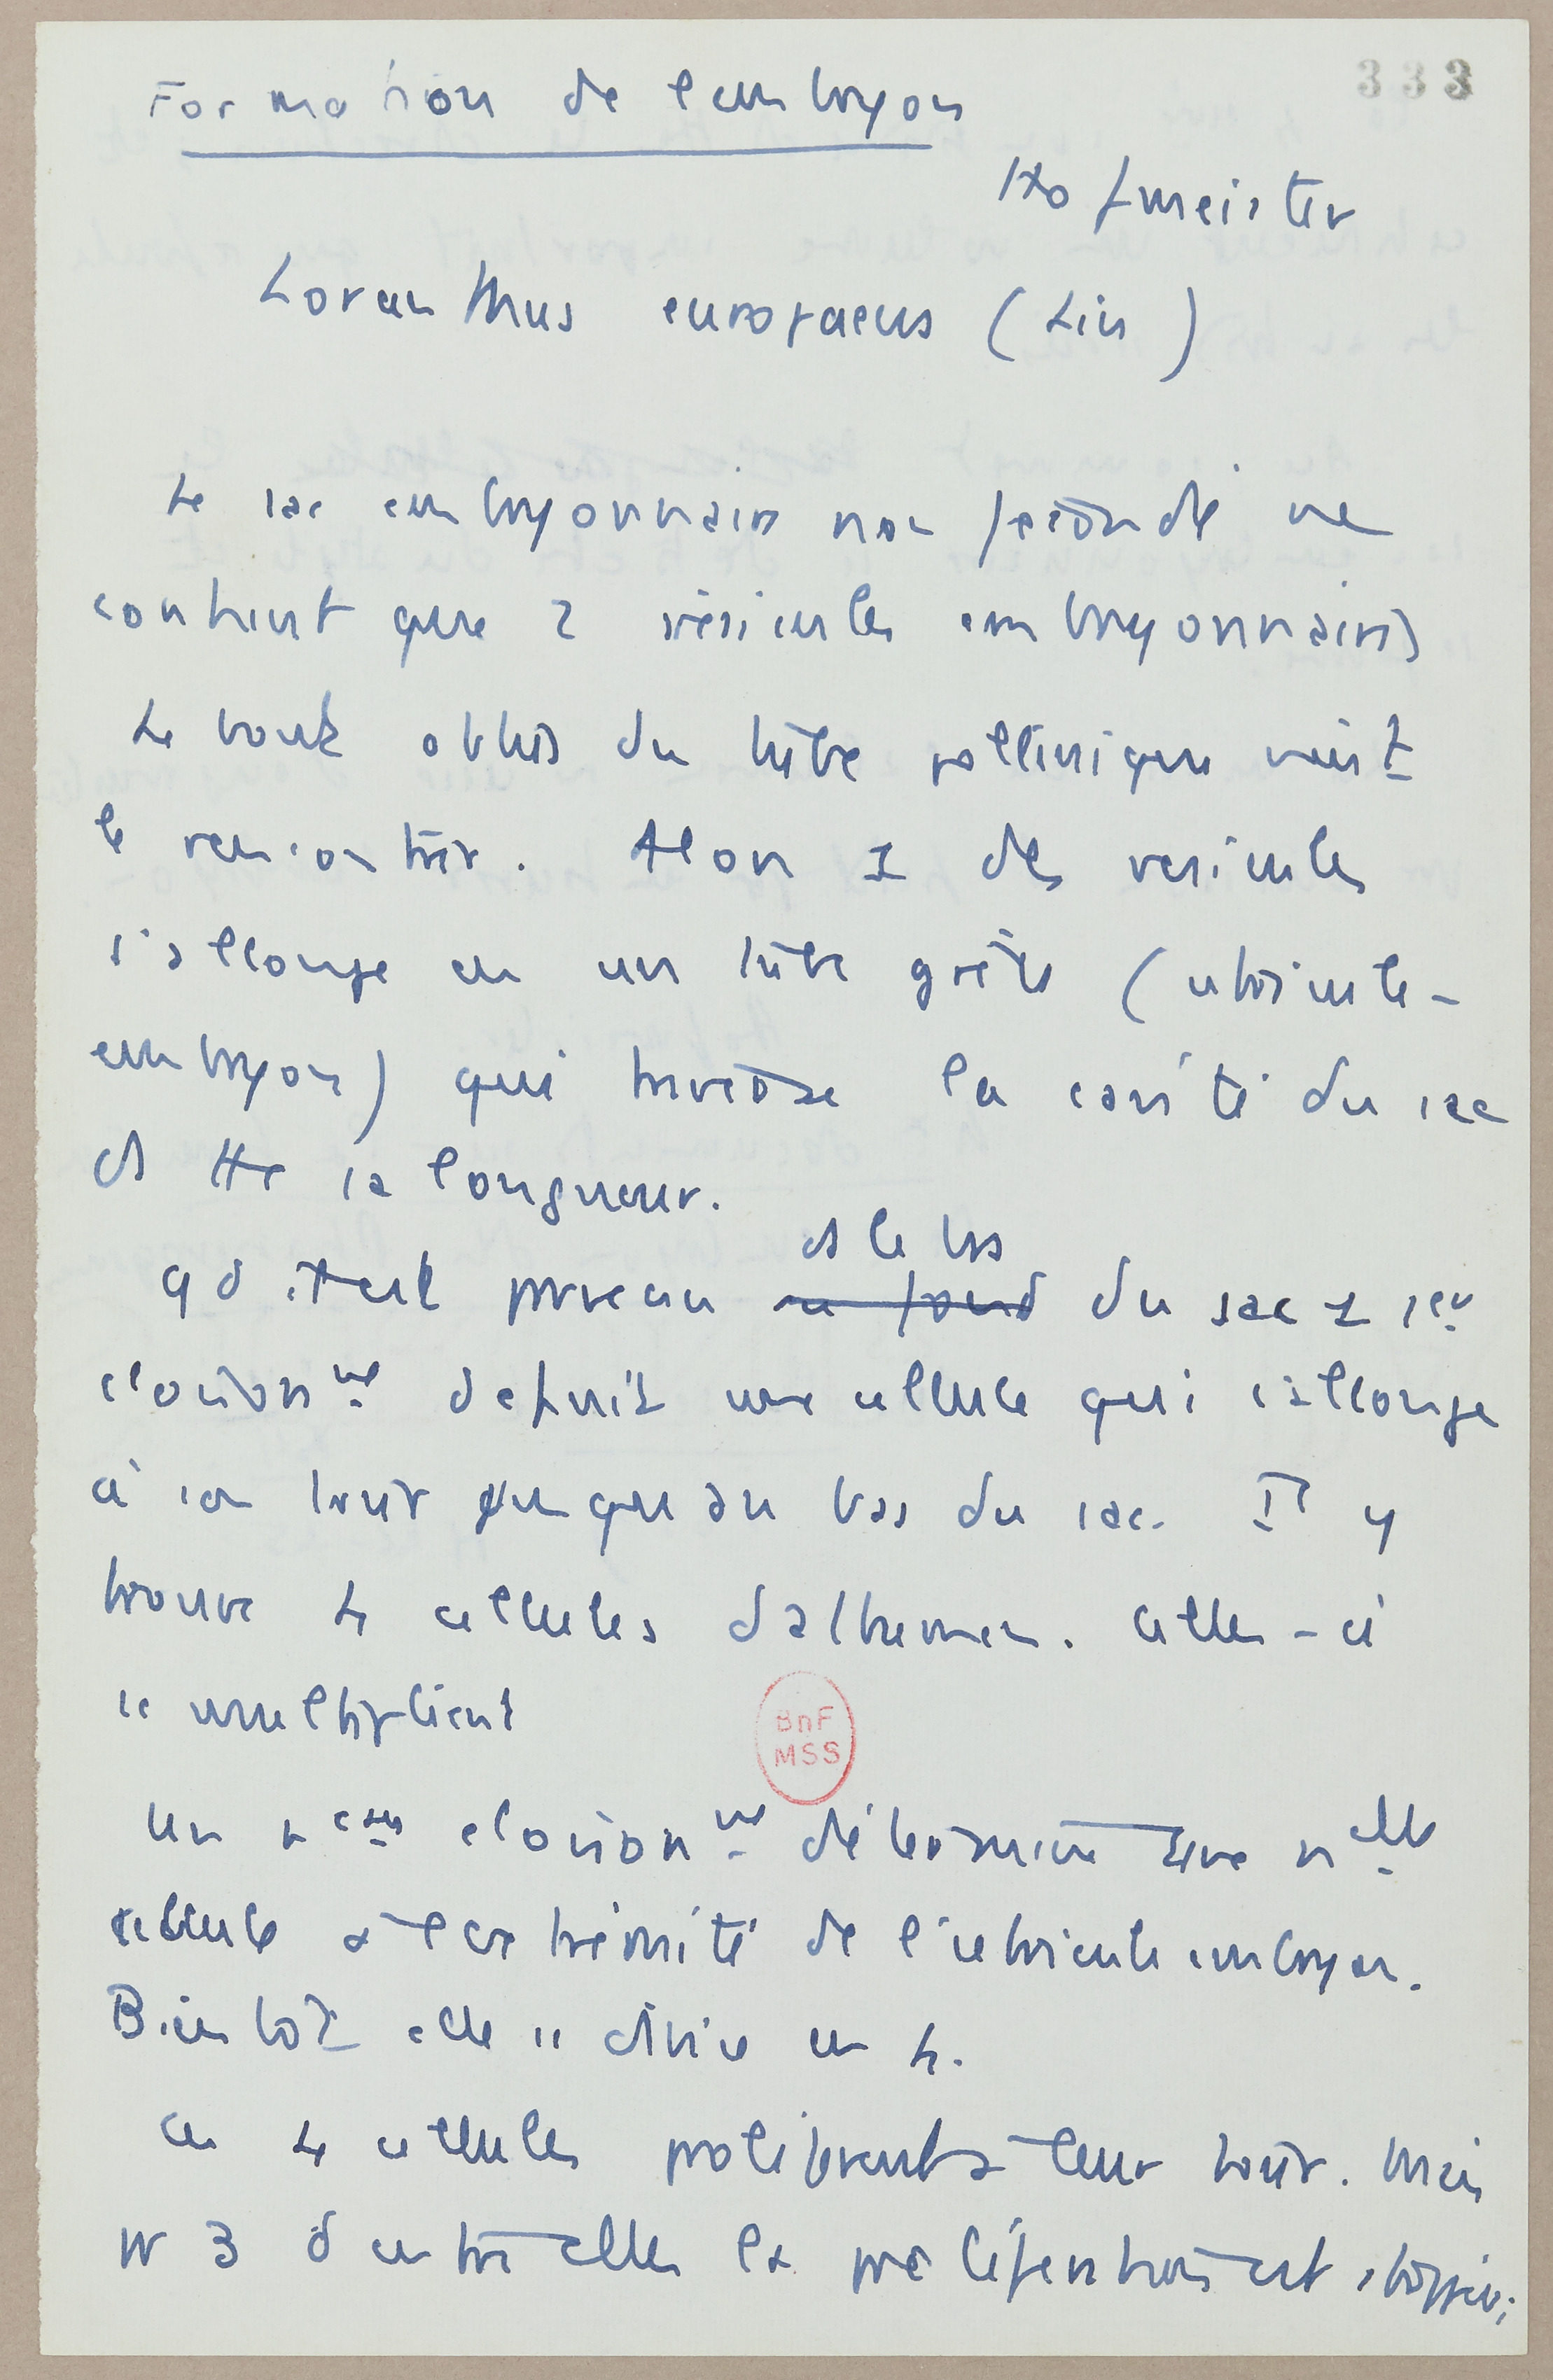 333
Formation de l'embryon
Hofmeister
Loranthus europaeus (Lin)
Le sac embryonnaire non fécondé ne
contient que 2 vésicules embryonnaires
Le bout obtus du tube pollinique vient
le rencontrer. Alors 1 des vesicules
s'allonge en un tube grêle (utricule-
embryon) qui traverse la cavité du sac
ds tte sa longueur.
qd il est parvenu au fond ds le bas du sac 1 1er
cloisonnet definit une cellule qui s'allonge
à son tour jusqu'au bas du sac. Il y
trouve 4 cellules d'albumen. Celles-ci
se multiplient
BnF
MSS
Un cloisonnet détermine une nelle
cellule à l'extrémité de l'utricule embryon.
Bientôt elle se divise en 4.
Ces 4 cellules prolifèrent à leur tour. Mais
pr 3 d'entre elles la prolifération est